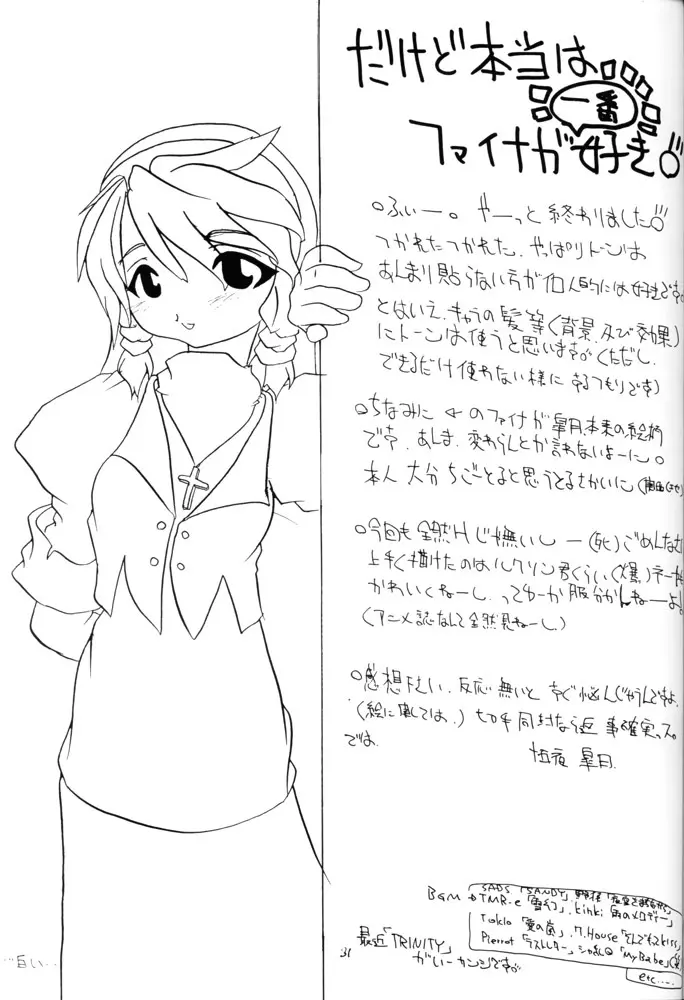 だけど本当は
一番
ファイナが好き!!
○ふぃー。やーっと終わりました!!
つかれたつかれた、やっぱりトーンは
あんまり貼らない方が個人的には好きです。
とはいえ、キャラの髪等(背景、及び効果)
にトーンは使うと思います。(ただし、
できるだけ使わない様にするつもりです)
○ちなみに←のファイナが皐月、本来の絵柄
です。あんま、変わらんとか言わないよーに。
本人 大分ちごーとると思うとるさかいに
○今回も全然Hじゃ無いしー(死)ごめんなさ
上手く描けたのはルクソン君くらい(爆)
かわいくねーし、ってゆーか服分かんねーよ!
(アニメ誌なんて全然見ねーし)
○感想下さい、反応無いとすぐ悩んじゃうんですよ、
(絵に関しては、)切手同封なら返事確実っス。
では、
皐月
BGM→
SADS「SANDY」
TMR-e「雪幻」、Kinki「雨のメロディー」
Tokio「愛の嵐」、
Pierrot「ラストレター」、シャ乱Q「My Babe」
etc……
最近「TRINITY」
がいーカンジです。
31
…白い…